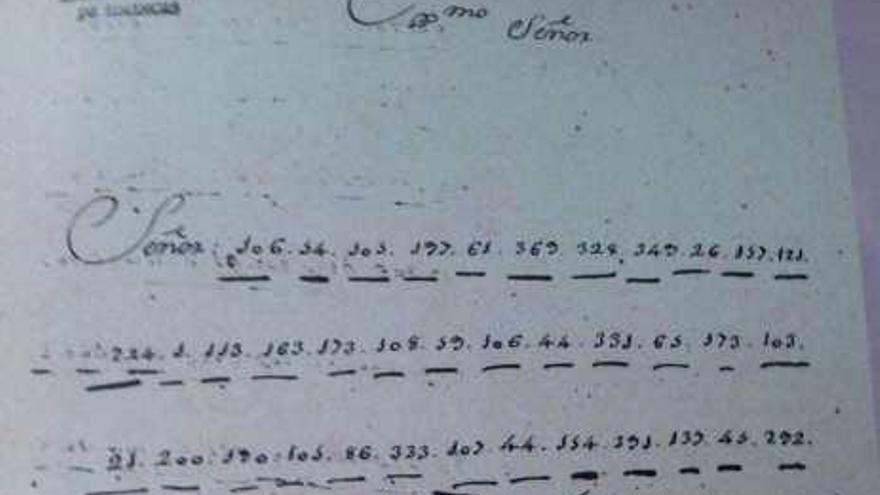 DE SIMANCAS
Exmo Señor
Señor: 106. 54. 105. 197. 61. 369. 328. 349. 26. 157. 121.
224. 1. 113. 163. 173. 108. 59. 106. 44. 331. 65. 173. 103.
21. 200. 190. 101. 86. 333. 107. 44. 154. 191. 139. 45. 292.